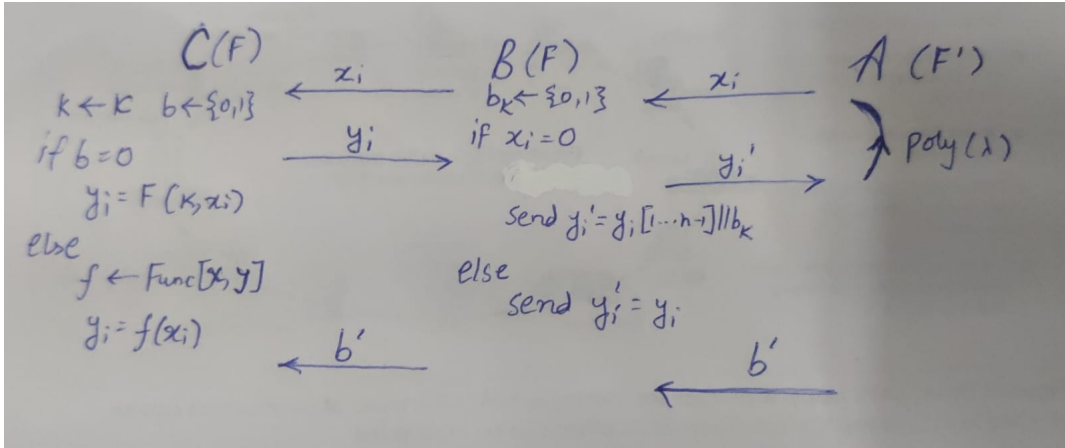 C(F)
k ← K b ← {0,1}
if b = 0
y_i = F(K, x_i)
else
f ← Func[X, Y]
y_i = f(x_i)
x_i
y_i
b'
B(F)
b_K ← {0,1}
if x_i = 0
send y_i' = y_i[1...n-1]||b_K
else
send y_i' = y_i
x_i
y_i'
b'
A (F')
poly(λ)